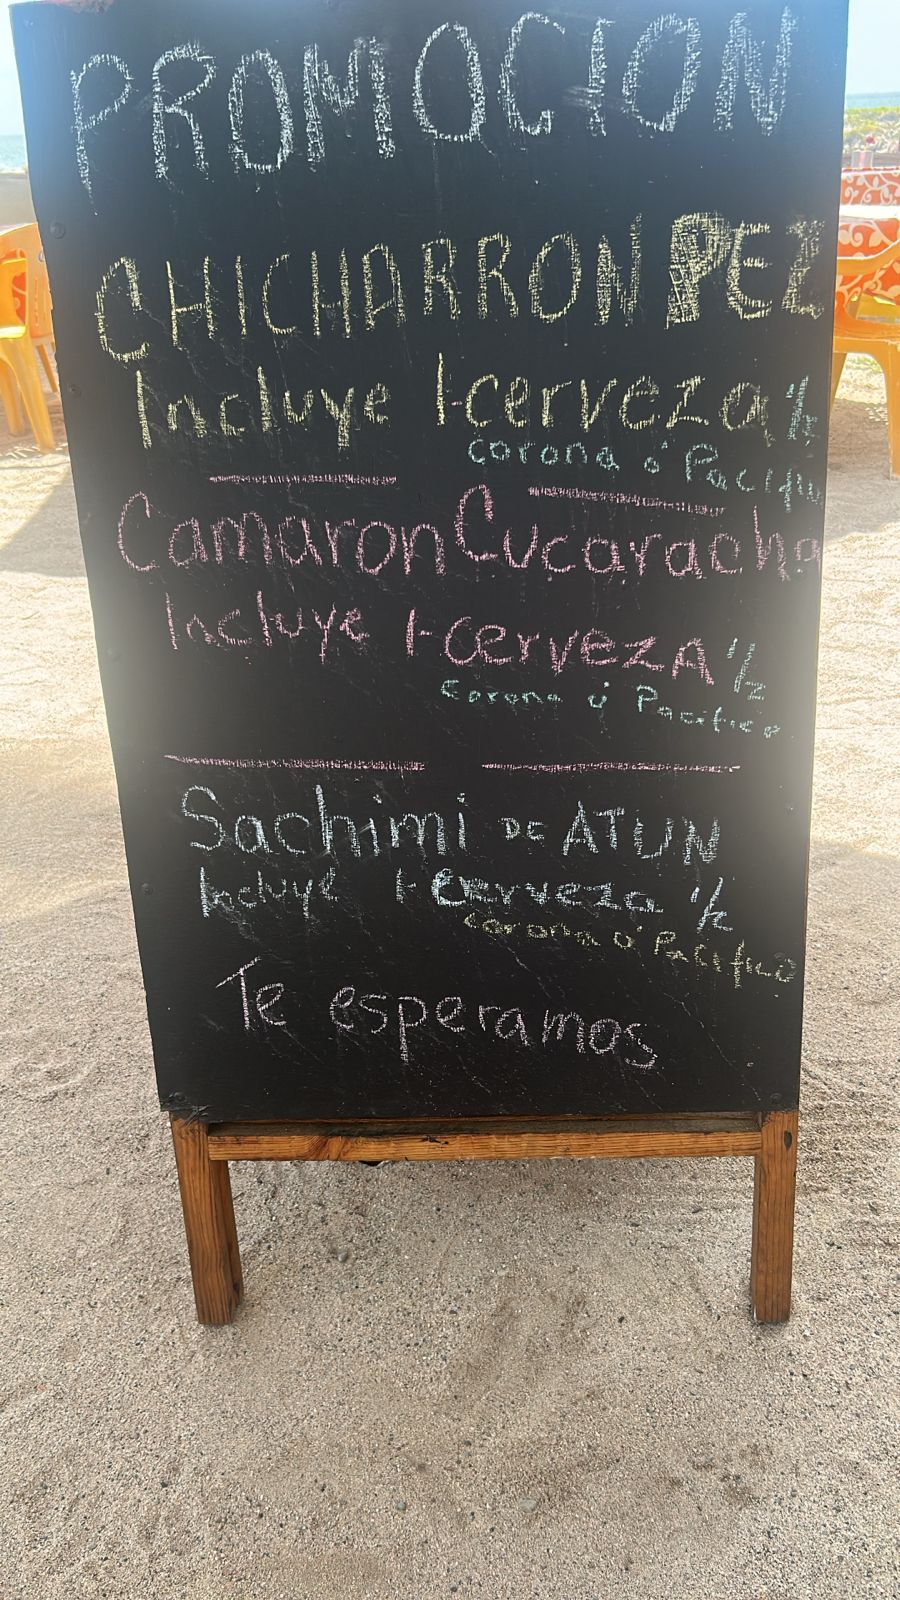 PROMOCION
CHICHARRON PEZ
Incluye 1-cerveza 1/2
corona ó Pacifico
Camaron Cucaracha
Incluye 1-CervezA 1/2
Corona ó Pacifico
Sachimi DE ATUN
Incluye 1-Cerveza 1/2
corona ó Pacifico
Te esperamos